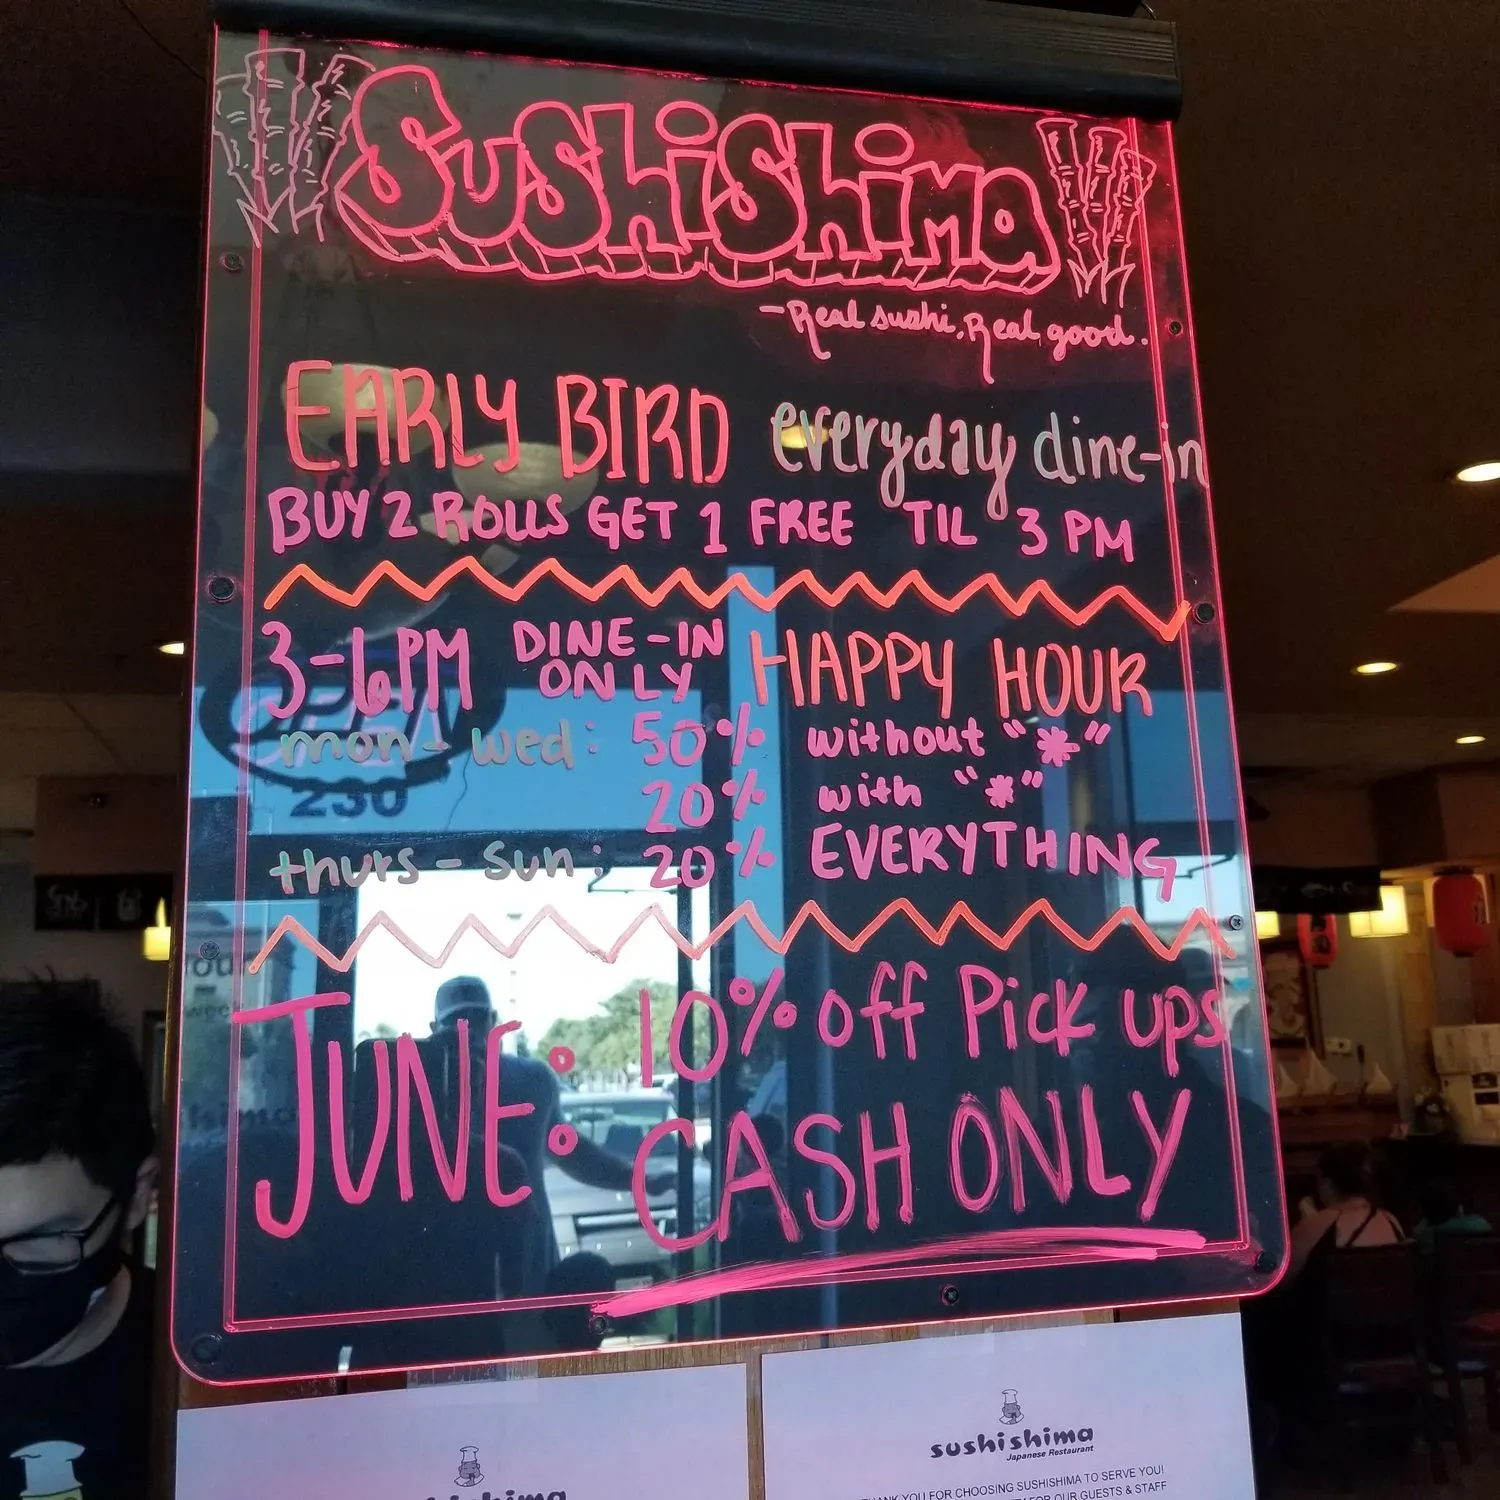 SuShiShima
-Real sushi, Real good.
EARLY BIRD everyday dine-in
BUY 2 ROLLS GET 1 FREE TIL 3 PM
3-6PM DINE-IN ONLY HAPPY HOUR
mon-wed: 50% without "*"
20% with "*"
thurs-sun: 20% EVERYTHING
JUNE: 10% off Pick ups
CASH ONLY
OPEN
230
sushishima
Japanese Restaurant
THANK YOU FOR CHOOSING SUSHISHIMA TO SERVE YOU!
FOR OUR GUESTS & STAFF